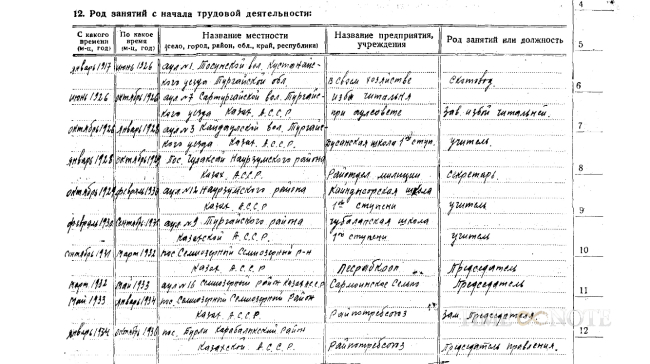 12. Род занятий с начала трудовой деятельности:
С какого времени (м-ц, год) По какое время (м-ц, год) Название местности (село, город, район, обл., край, республика) Название предприятия, учреждения Род занятий или должность
январь 1917 июнь 1926 аул №1. Тосунской вол. Кустанайс-
кого уезда Тургайской обл. в своем хозяйстве Скотовод.
июнь 1926 октябрь 1926 аул №7 Сартургайской вол. Тургайс- изба читальня
кого уезда Казак. А.С.С.Р. при аулсовете Зав. избой читальней.
октябрь 1926 январь 1928 аул №3 вол. Тургайс-
кого уезда Казак. А.С.С.Р. школа 1ой ступ. учитель.
январь 1928 октябрь 1929 пос. Наурзумского района
Казак. А.С.С.Р. Райотдел милиции Секретарь.
октябрь 1929 февраль 1930 аул №12 Наурзумского района школа
Казак. А.С.С.Р. 1ой ступени учитель
февраль 1930 Сентябрь 1931 аул №9 Тургайского района школа
Казакской А.С.С.Р. 1ой ступени учитель
сентябрь 1931 март 1932 пос Семиозерный Семиозерный р-н
Казак. А.С.С.Р. Председатель
март 1932 май 1933 аул №16 Семиозерный район Казак. А.С.С.Р. Председатель
май 1933 январь 1934 пос. Семиозерный Семиозерный Район
Казак. А.С.С.Р. Райпотребсоюз зам. председателя
январь 1934 1936 пос. Карабалыкский Район
Казакской А.С.С.Р. Райпотребсоюз Председатель правления.
4
5
6
7
8
9
10
11
12